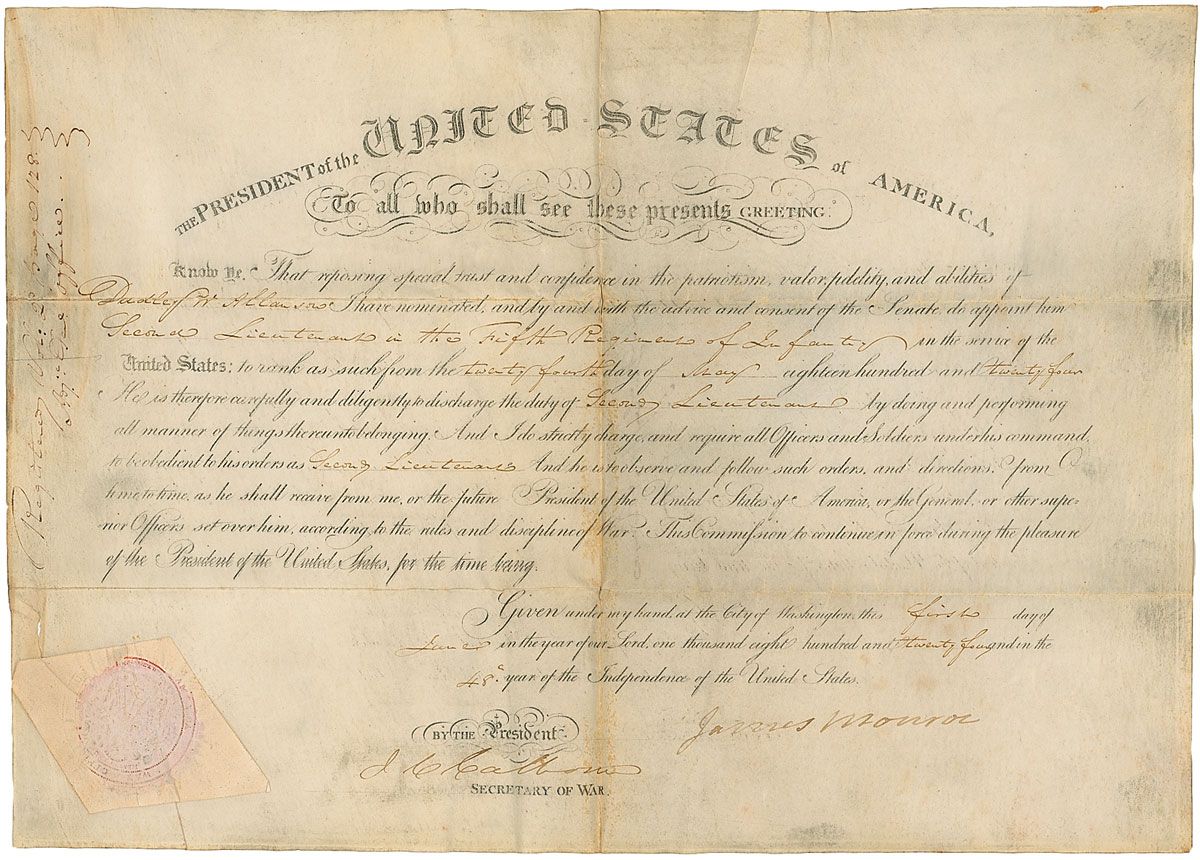 THE PRESIDENT of the UNITED STATES of AMERICA,
To all who shall see these presents GREETING:
Know Ye, That reposing special trust and confidence in the patriotism, valor, fidelity, and abilities of
Dudley W Allanson I have nominated, and by and with the advice and consent of the Senate, do appoint him
Second Lieutenant in the Fifth Regiment of Infantry in the service of the
United States: to rank as such from the twenty fourth day of May eighteen hundred and twenty four
He is therefore carefully and diligently to discharge the duty of Second Lieutenant by doing and performing
all manner of things thereunto belonging. And I do strictly charge, and require all Officers and Soldiers under his command,
to be obedient to his orders as Second Lieutenant And he is to observe and follow such orders, and directions, from
time to time, as he shall receive from me, or the future President of the United States of America, or the General, or other supe-
rior Officers set over him, according to the rules and discipline of War. This Commission to continue in force during the pleasure
of the President of the United States, for the time being.
Given under my hand, at the City of Washington, this first day of
June in the year of our Lord, one thousand eight hundred and twenty four, and in the
48th year of the Independence of the United States.
James Monroe
BY THE President
J C Calhoun
SECRETARY OF WAR.
Registered Page 128
Office